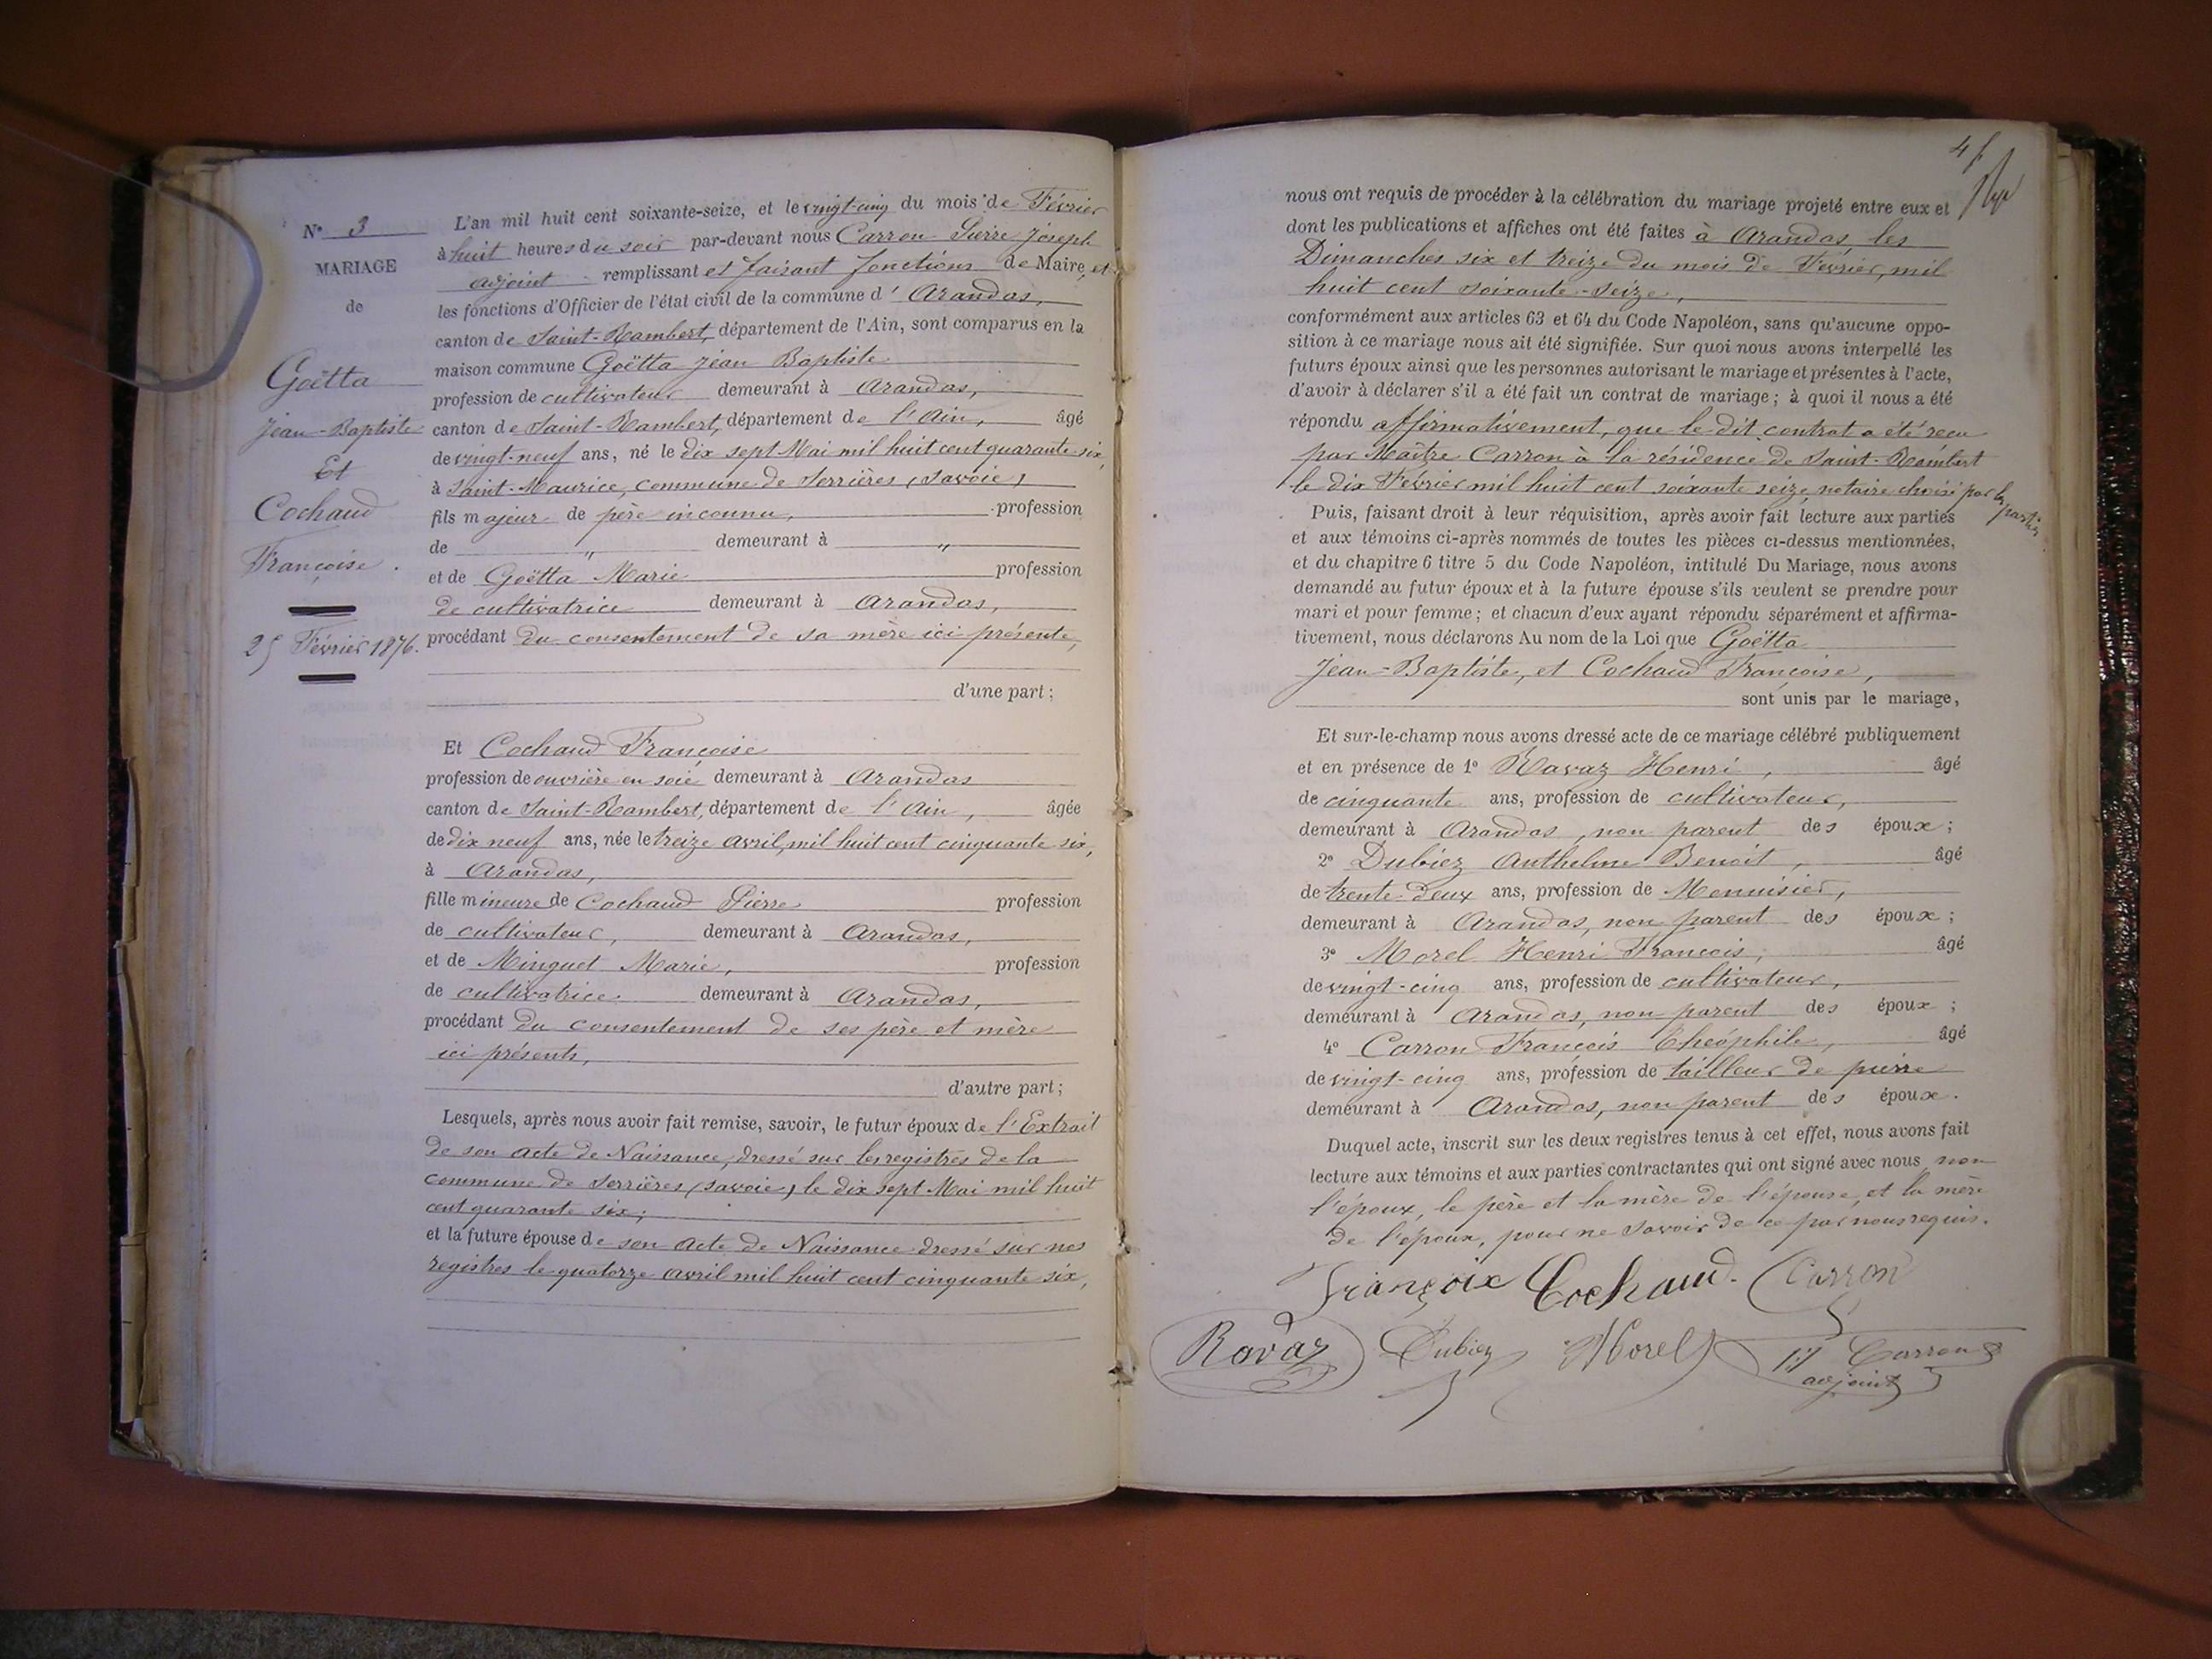 N° 3
MARIAGE
de
Goëtta
Jean-Baptiste
Et
Cochaud
Françoise.
25 Février 1876.
L'an mil huit cent soixante-seize, et le vingt-cinq du mois de Février
à huit heures du soir par-devant nous Carron Pierre Joseph
adjoint remplissant et faisant fonctions de Maire, et
les fonctions d'Officier de l'état civil de la commune d' Arandas,
canton de Saint-Rambert, département de l'Ain, sont comparus en la
maison commune Goëtta Jean Baptiste
profession de cultivateur demeurant à Arandas,
canton de Saint-Rambert, département de l'Ain, âgé
de vingt-neuf ans, né le dix sept Mai mil huit cent quarante-six,
à Saint-Maurice, commune de Serrières (Savoie)
fils majeur de père inconnu, profession
de " demeurant à "
et de Goëtta Marie profession
de cultivatrice demeurant à Arandas,
procédant du consentement de sa mère ici présente,
d'une part;
Et Cochaud Françoise
profession de ouvrière en soie, demeurant à Arandas
canton de Saint-Rambert, département de l'Ain, âgée
de dix neuf ans, née le treize avril, mil huit cent cinquante six,
à Arandas,
fille mineure de Cochaud Pierre profession
de cultivateur, demeurant à Arandas,
et de Minguet Marie, profession
de cultivatrice demeurant à Arandas,
procédant du consentement de ses père et mère
ici présents,
d'autre part;
Lesquels, après nous avoir fait remise, savoir, le futur époux de l'Extrait
de son acte de Naissance, dressé sur les registres de la
commune de Serrières (Savoie), le dix sept Mai mil huit
cent quarante six;
et la future épouse de son acte de Naissance dressé sur nos
registres le quatorze avril mil huit cent cinquante six,
nous ont requis de procéder à la célébration du mariage projeté entre eux et
dont les publications et affiches ont été faites à Arandas, les
Dimanches six et treize du mois de Février, mil
huit cent soixante-seize,
conformément aux articles 63 et 64 du Code Napoléon, sans qu'aucune oppo-
sition à ce mariage nous ait été signifiée. Sur quoi nous avons interpellé les
futurs époux ainsi que les personnes autorisant le mariage et présentes à l'acte,
d'avoir à déclarer s'il a été fait un contrat de mariage; à quoi il nous a été
répondu affirmativement, que le dit contrat a été reçu
par Maître Carron à la résidence de Saint-Rambert
le dix Février mil huit cent soixante seize, notaire choisi par les parties
Puis, faisant droit à leur réquisition, après avoir fait lecture aux parties
et aux témoins ci-après nommés de toutes les pièces ci-dessus mentionnées,
et du chapitre 6 titre 5 du Code Napoléon, intitulé Du Mariage, nous avons
demandé au futur époux et à la future épouse s'ils veulent se prendre pour
mari et pour femme; et chacun d'eux ayant répondu séparément et affirma-
tivement, nous déclarons Au nom de la Loi que Goëtta
Jean-Baptiste, et Cochaud Françoise,
sont unis par le mariage,
Et sur-le-champ nous avons dressé acte de ce mariage célébré publiquement
et en présence de 1° Ravaz Henri, âgé
de cinquante ans, profession de cultivateur,
demeurant à Arandas, non parent des époux;
2° Dubiez Anthelme Benoit, âgé
de trente-deux ans, profession de Menuisier,
demeurant à Arandas, non parent des époux;
3° Morel Henri François, âgé
de vingt-cinq ans, profession de cultivateur,
demeurant à Arandas, non parent des époux;
4° Carron François Théophile, âgé
de vingt-cinq ans, profession de tailleur de pierre
demeurant à Arandas, non parent des époux.
Duquel acte, inscrit sur les deux registres tenus à cet effet, nous avons fait
lecture aux témoins et aux parties contractantes qui ont signé avec nous non
l'époux, le père et la mère de l'épouse, et la mère
de l'époux, pour ne savoir de ce par nous requis.
Françoix Cochaud. Carron
Ravaz Dubiez Morel Carron
adjoint